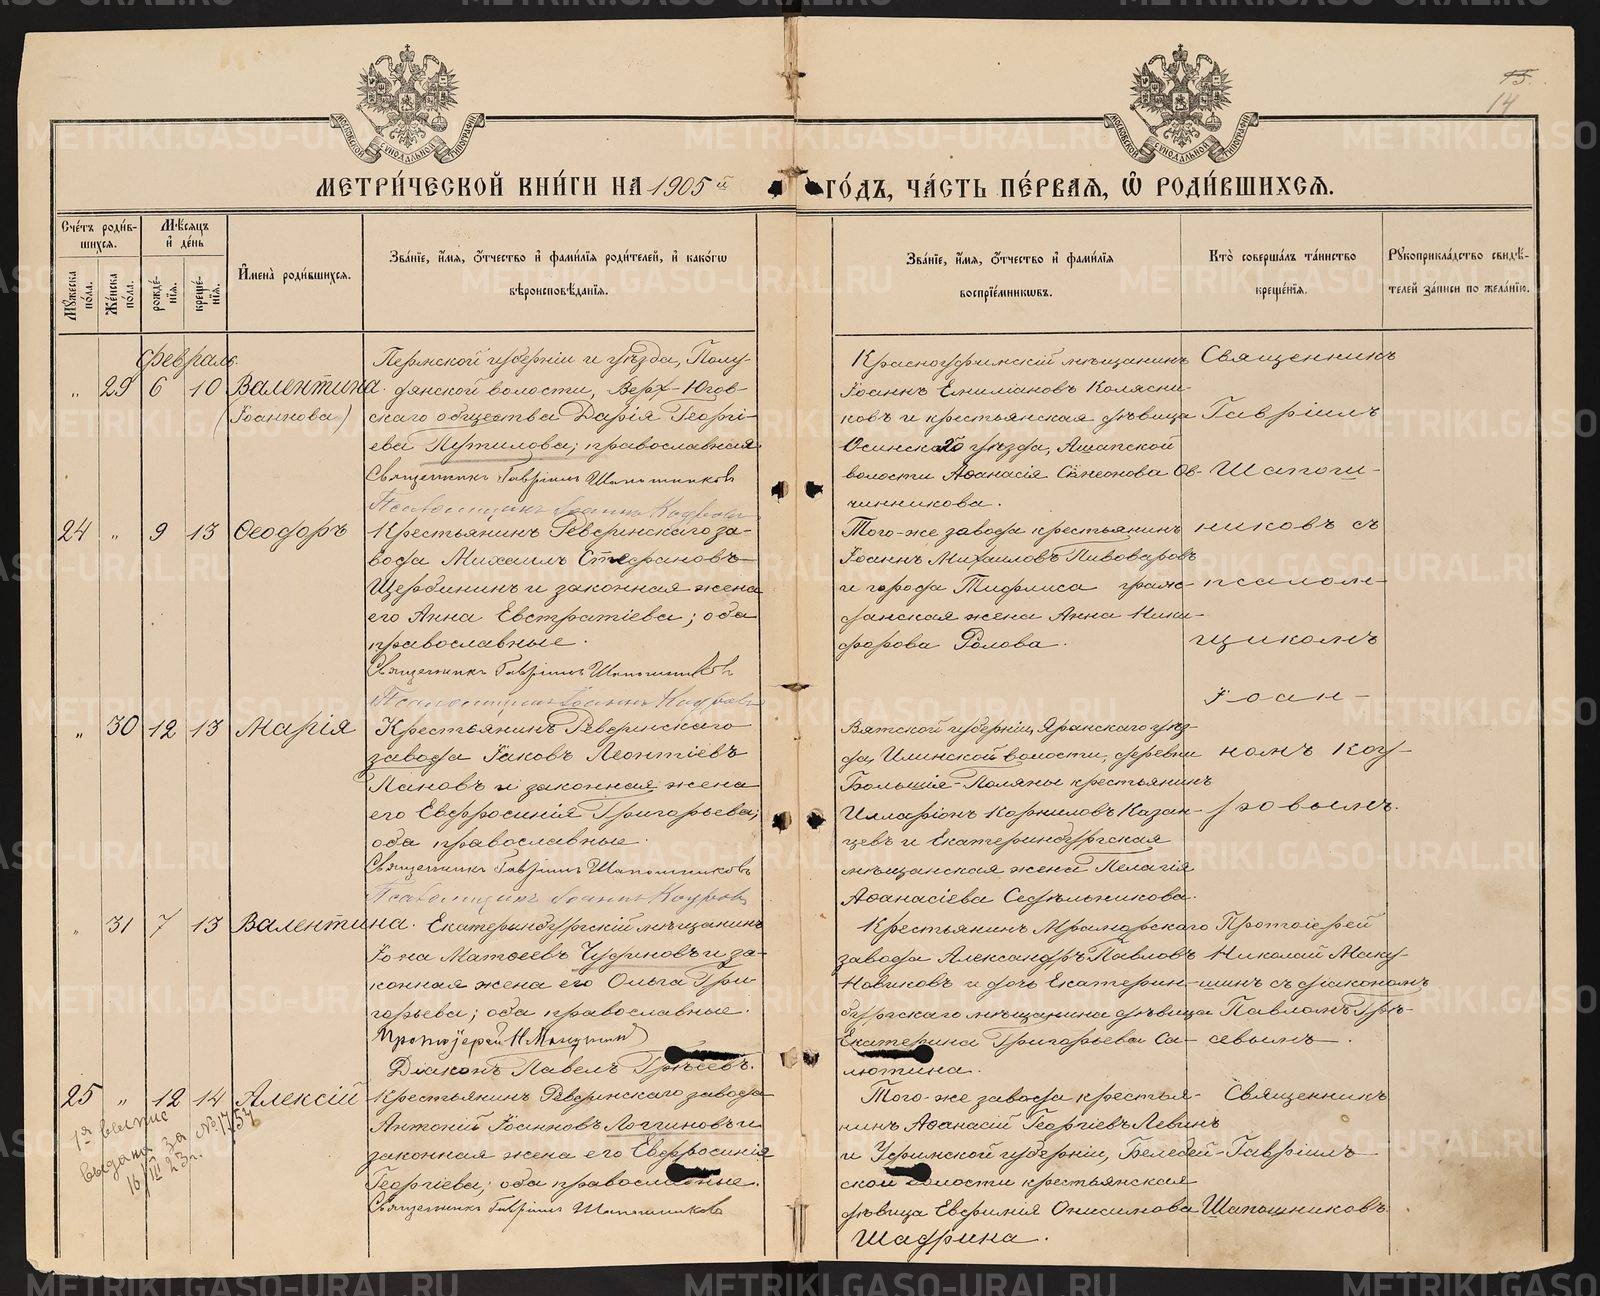 15.
14
МОСКОВСКОЙ СѴНОДАЛЬНОЙ ТИПОГРАФІИ
МОСКОВСКОЙ СѴНОДАЛЬНОЙ ТИПОГРАФІИ
МЕТРИ́ЧЕСКОЙ КНИ́ГИ НА 1905й ГО́ДЪ, ЧА́СТЬ ПЕ́РВАЯ, Ѽ РОДИ́ВШИХСЯ.
Сче́тъ роди́в-
шихся.
Мѣ́сяцъ
и҆ де́нь
Мꙋ́жеска
по́ла.
Же́нска
по́ла.
рожде́-
нїя.
креще́-
нїя.
И҆мена̀ роди́вшихся.
Зва́нїе, и҆́мя, ѻ҆́тчество и҆ фами́лїя роди́телей, и҆ како́гѡ
вѣроисповѣ́данїя.
Зва́нїе, и҆́мя, ѻ҆́тчество и҆ фами́лїя
воспрїе́мникѡвъ.
Кто̀ соверша́лъ та́инство
креще́нїя.
Рꙋкоприкла́дство свидѣ́-
телей за́писи по жела́нїю.
Февраль.
„ 29 6 10 Валентина.
(Іоаннова)
Пермской губерніи и уѣзда, Полу-
дянской волости, Верх-Югов-
скаго общества Дарія Георгі-
ева Путилова; православная
Священникъ Гавріилъ Шапошниковъ
Псаломщикъ Іоаннъ Кодровъ
Красноуфимскій мѣщанинъ
Іоаннъ Емиліановъ Колясни-
ковъ и крестьянская дѣвица
Осинскаго уѣзда, Ашапской
волости Аѳанасія Симеонова Ов-
чинникова.
Священникъ
Гавріилъ
Шапош-
никовъ съ
псалом-
щикомъ
Іоан-
номъ Код-
ровымъ.
24 „ 9 13 Ѳеодоръ
Крестьянинъ Ревдинскаго за-
вода Михаилъ Стефановъ
Щербининъ и законная жена
его Анна Евстратіева; оба
православные.
Священникъ Гавріилъ Шапошниковъ
Псаломщикъ Іоаннъ Кодровъ
Того-же завода крестьянинъ
Іоаннъ Михаиловъ Пивоваровъ
и города Тифлиса граж-
данская жена Анна Ники-
форова Ролова.
„ 30 12 13 Марія
Крестьянинъ Ревдинскаго
завода Іаковъ Леонтіевъ
Пановъ и законная жена
его Евфросинія Григорьева;
оба православные.
Священникъ Гавріилъ Шапошниковъ
Псаломщикъ Іоаннъ Кодровъ
Вятской губерніи, Яранскаго уѣз-
да, Илинской волости, деревни
Большія-Поляны крестьянинъ
Илларіонъ Корниловъ Казан-
цевъ и Екатеринбургская
мѣщанская жена Пелагія
Аѳанасіева Седѣльникова.
„ 31 7 13 Валентина.
Екатеринбургскій мѣщанинъ
Іона Матѳеевъ Чудиновъ и за-
конная жена его Ольга Гри
горьева; оба православные.
Протоіерей Н. Макушинъ
Діаконъ Павелъ Грѣсевъ.
Крестьянинъ Мраморскаго
завода Александръ Павловъ
Новиковъ и дочь Екатерин-
бургскаго мѣщанина дѣвица
Екатерина Григорьева Са-
лютина.
Протоіерей
Николай Маку-
шинъ съ діакономъ
Павломъ Грѣ-
севымъ.
25 „ 12 14 Алексій
1я выпис
выдана за № 1757
16/III 23 г.
Крестьянинъ Ревдинскаго завода
Антоній Іоанновъ Логгиновъ и
законная жена его Евфросинія
Георгіева; оба православные.
Священникъ Гавріилъ Шапошниковъ
Того-же завода крестья-
нинъ Аѳанасій Георгіевъ Левинъ
и Уфимской губерніи, Белебей-
ской волости крестьянская
дѣвица Евфимія Онисимова
Шадрина.
Священникъ
Гавріилъ
Шапошниковъ
METRIKI.GASO-URAL.RU